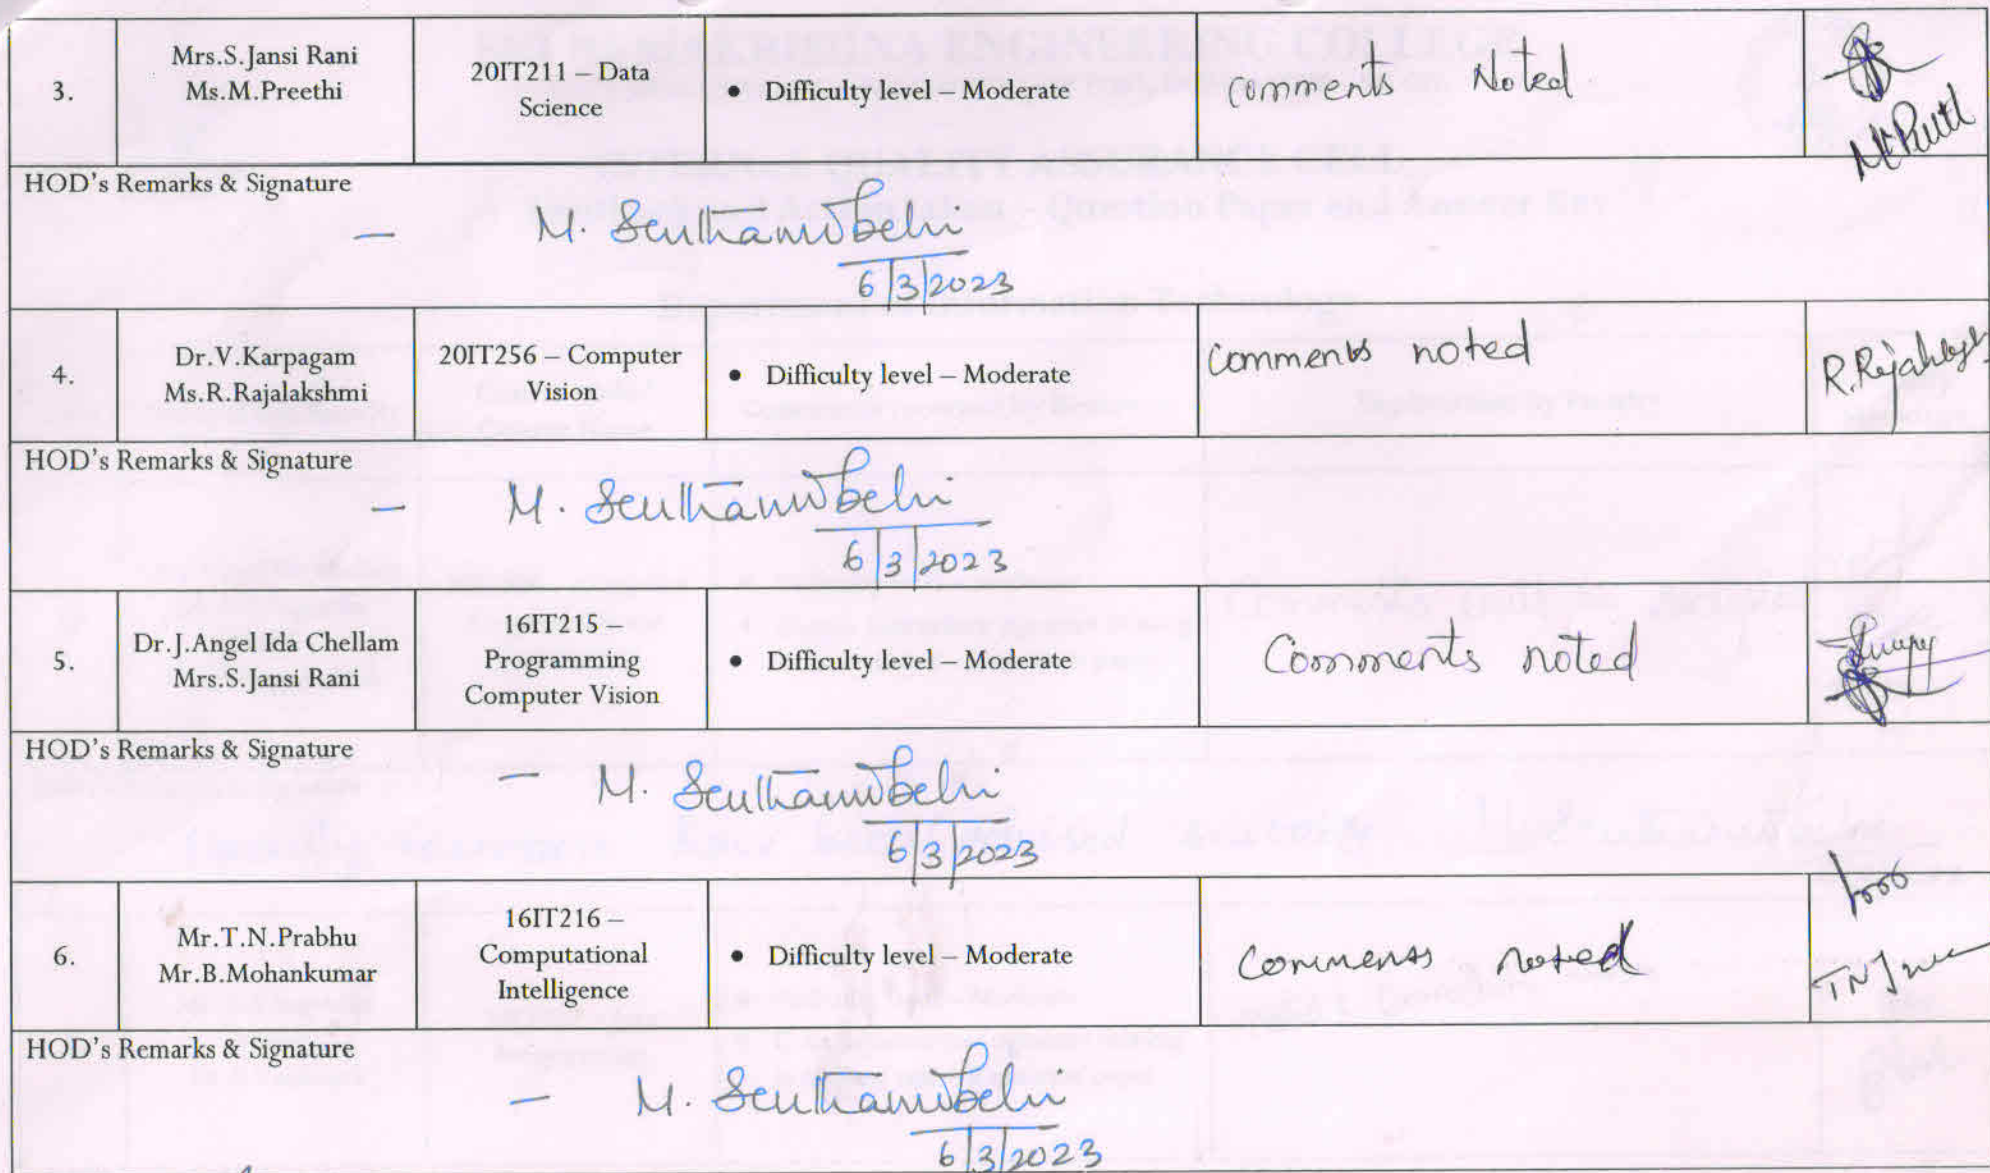 3.
Mrs.S.Jansi Rani
Ms.M.Preethi
20IT211 – Data
Science
• Difficulty level – Moderate
comments Noted
HOD's Remarks & Signature
— M.
6/3/2023
4.
Dr.V.Karpagam
Ms.R.Rajalakshmi
20IT256 – Computer
Vision
• Difficulty level – Moderate
Comments noted
HOD's Remarks & Signature
— M.
6/3/2023
5.
Dr.J.Angel Ida Chellam
Mrs.S.Jansi Rani
16IT215 –
Programming
Computer Vision
• Difficulty level – Moderate
Comments noted
HOD's Remarks & Signature
— M.
6/3/2023
6.
Mr.T.N.Prabhu
Mr.B.Mohankumar
16IT216 –
Computational
Intelligence
• Difficulty level – Moderate
Comments noted
HOD's Remarks & Signature
— M.
6/3/2023